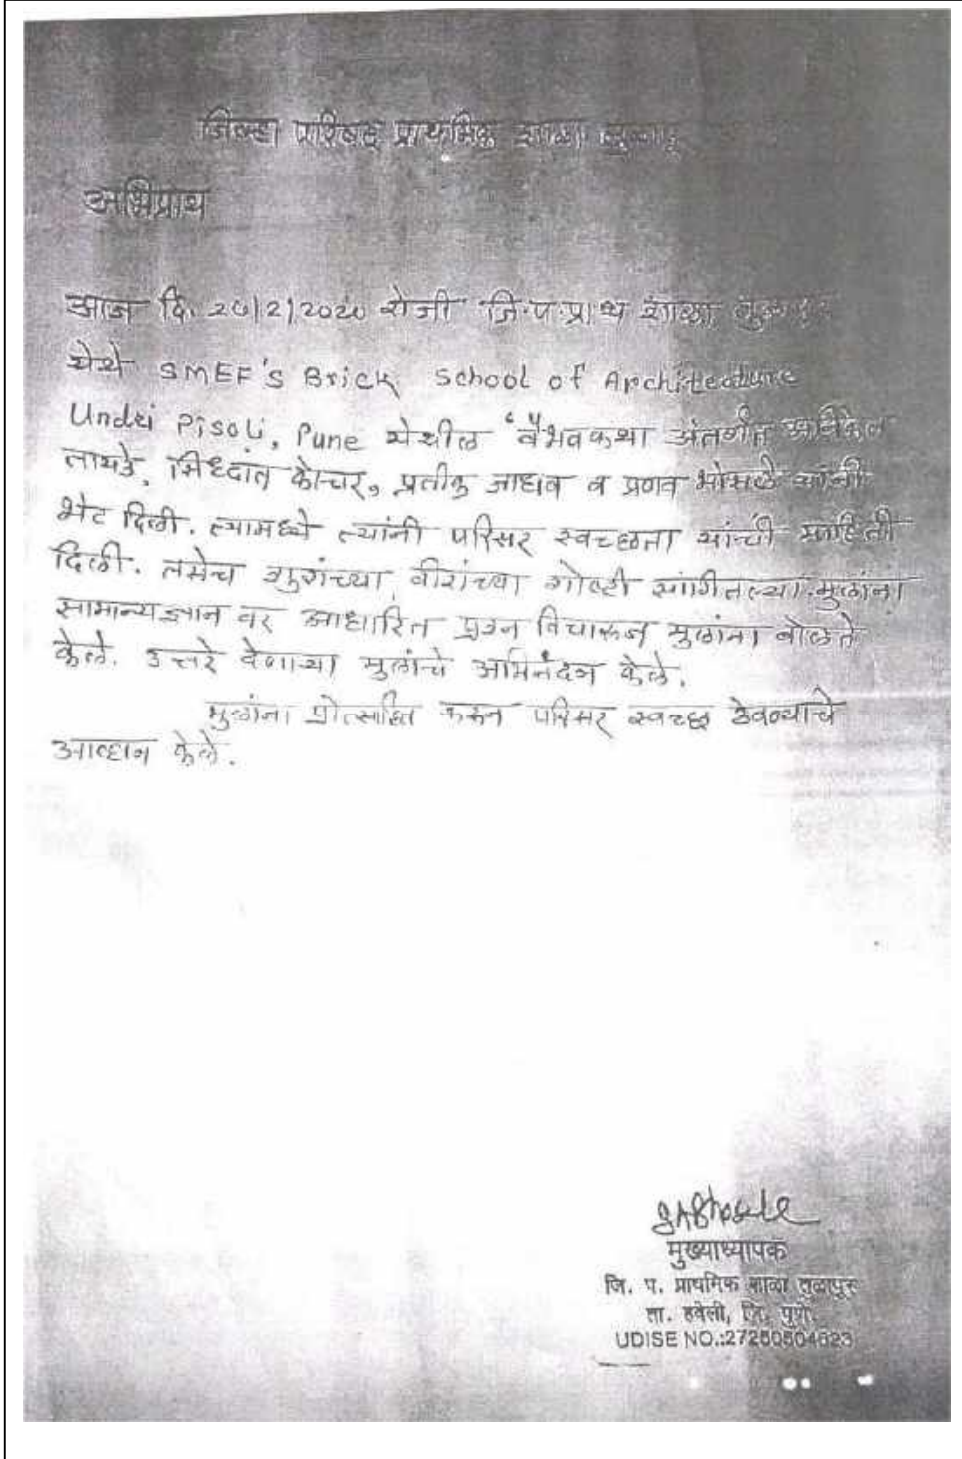 जिल्हा परिषद प्राथमिक शाळा
अभिप्राय
आज दि. 20/2/2020 रोजी जि.प.प्राथ शाळा
येथे SMEF's Brick School of Architecture
Undri Pisoli, Pune येथील "वैभवकथा अंतर्गत
तायडे, सिध्दांत कोचर, प्रतीक जाधव व प्रणव भोसले यांनी
भेट दिली. त्यामध्ये त्यांनी परिसर स्वच्छता यांची माहिती
दिली. तसेच शुरांच्या, वीरांच्या गोष्टी सांगीतल्या. मुलांना
सामान्यज्ञान वर आधारित प्रश्न विचारून मुलांना बोलते
केले. उत्तरे देणाऱ्या मुलांचे अभिनंदन केले.
मुलांना प्रोत्साहित करून परिसर स्वच्छ ठेवण्याचे
आव्हान केले.
SABhosale
मुख्याध्यापक
जि. प. प्राथमिक शाळा तुळापुर
ता. हवेली, जि. पुणे.
UDISE NO.:27250504623